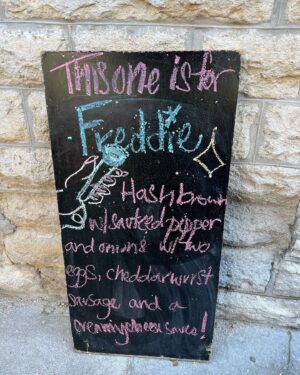 This one is for
Freddie
Hashbrown
w/ sauteed pepper
and onions w/ two
eggs, cheddarwurst
sausage and a
creamy cheese sauce!